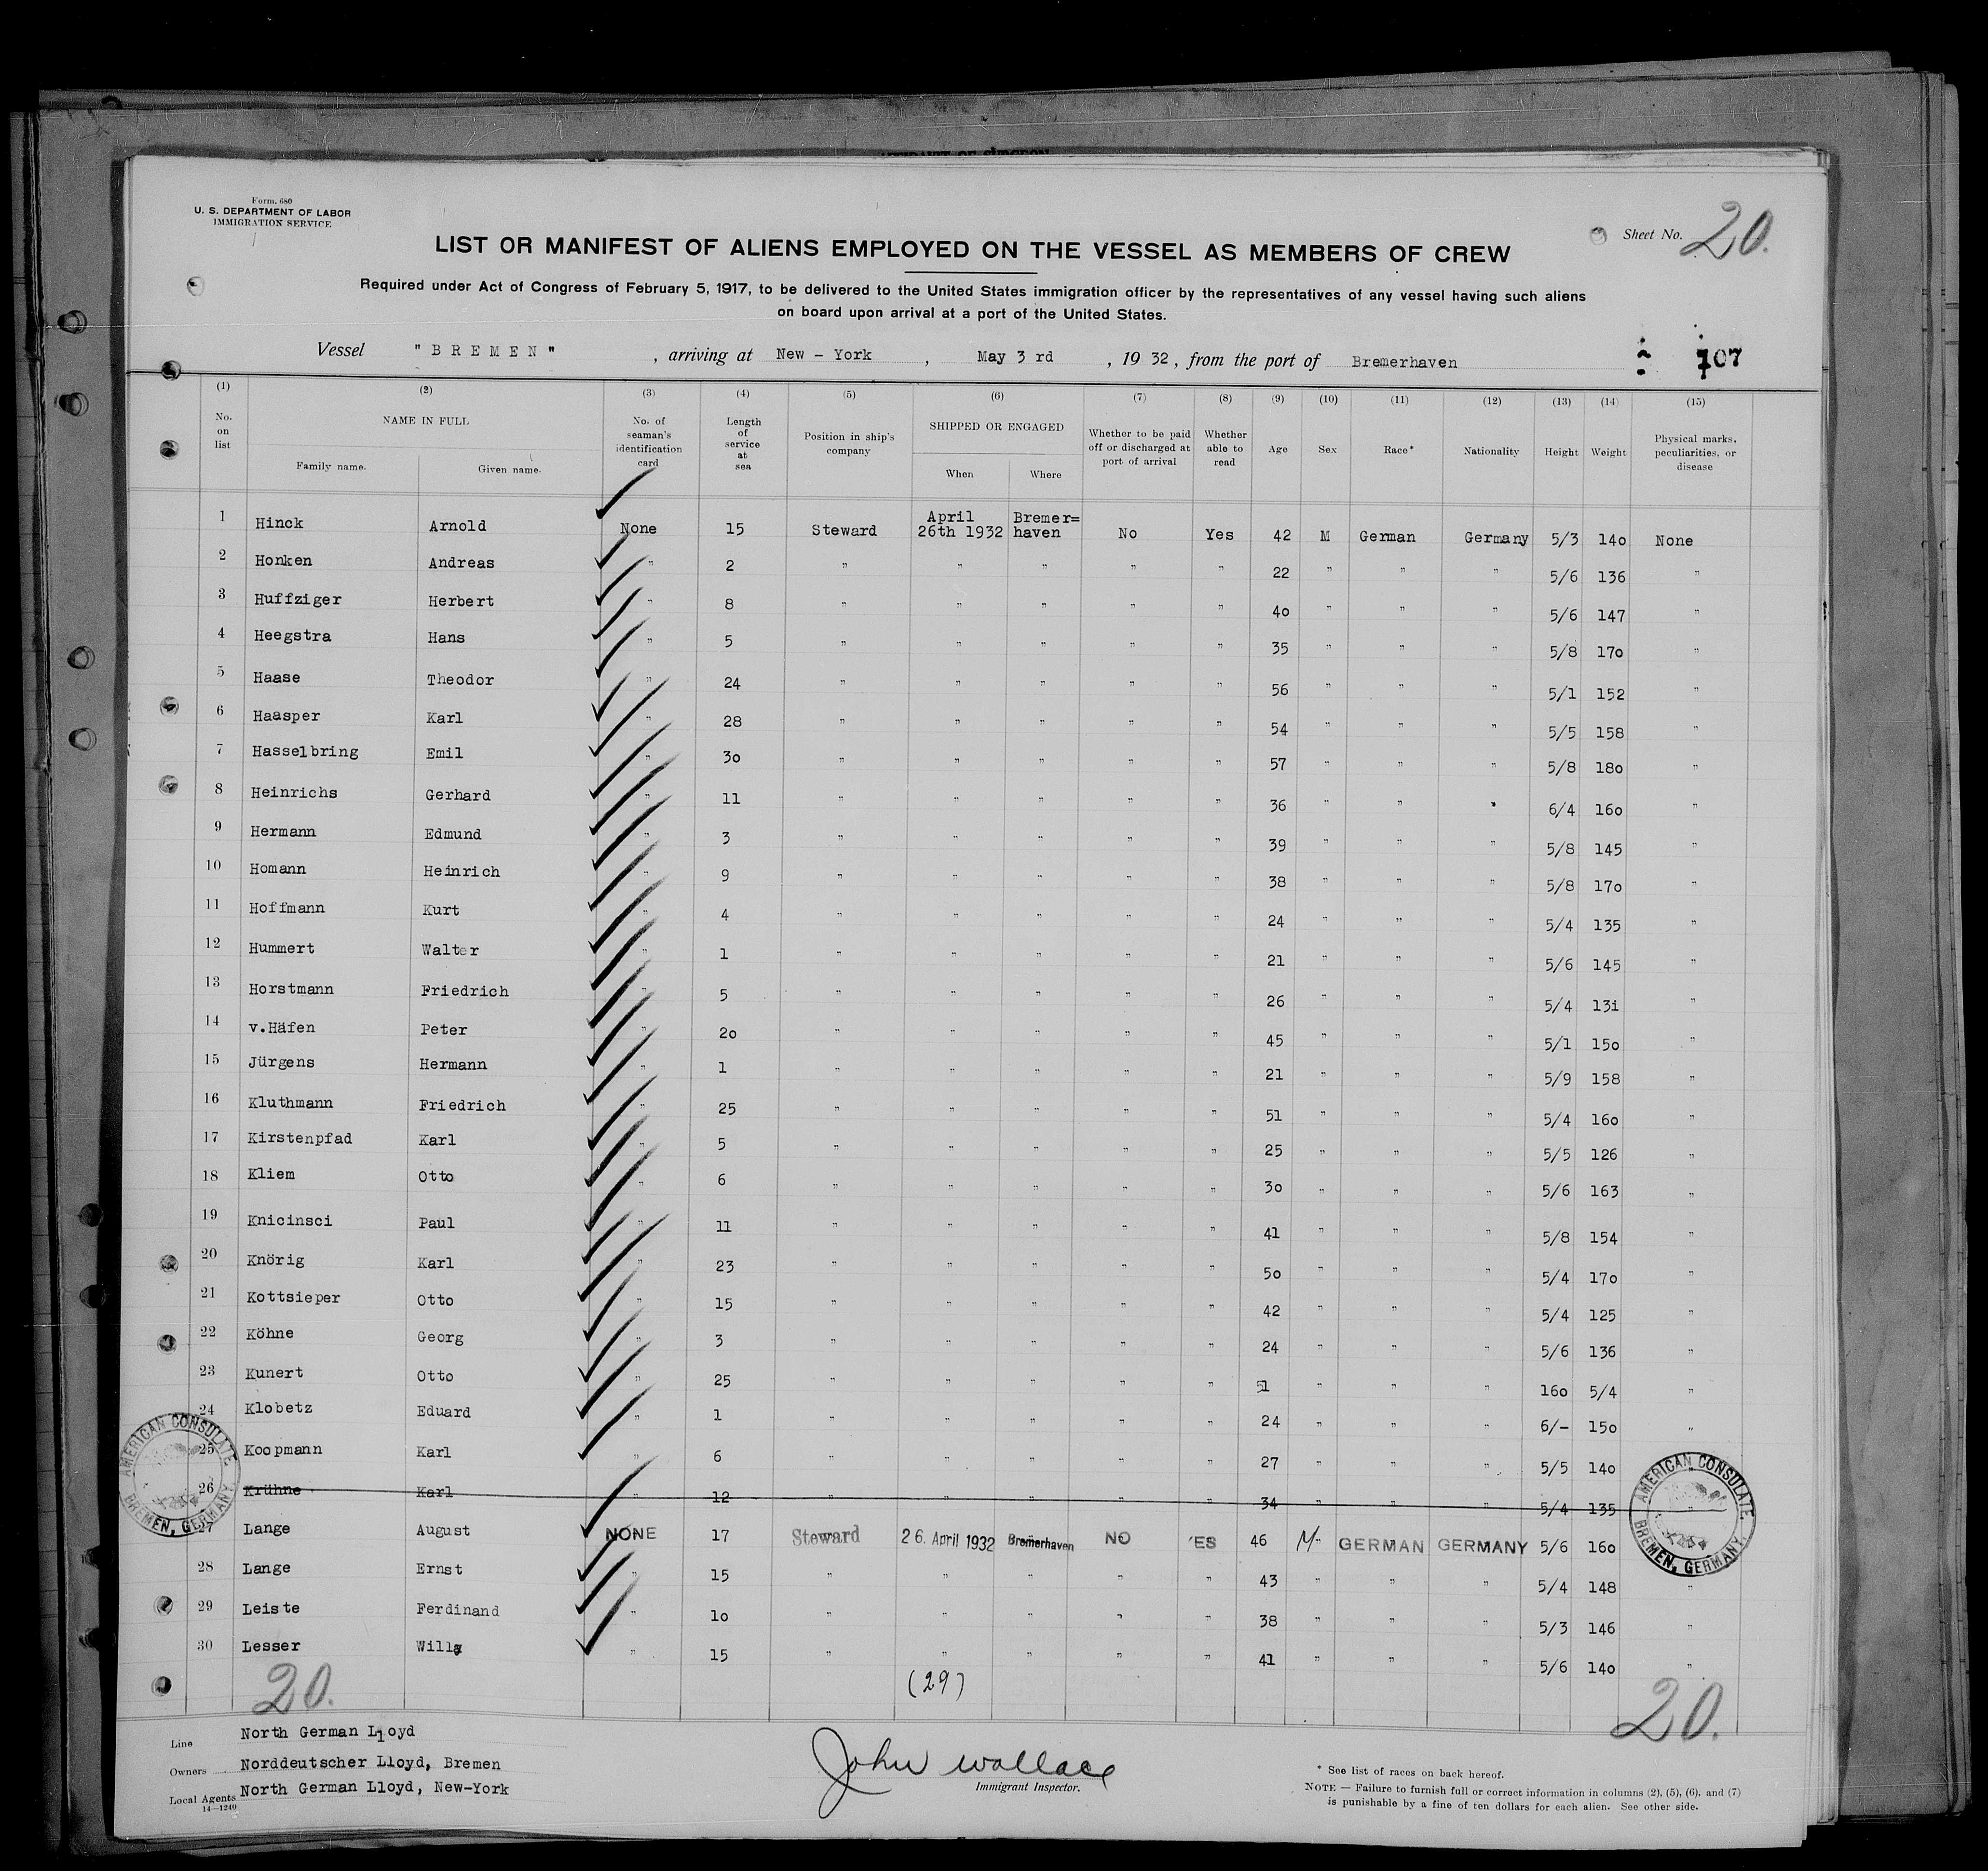 Form. 680
U. S. DEPARTMENT OF LABOR
IMMIGRATION SERVICE
Sheet No. 20.
LIST OR MANIFEST OF ALIENS EMPLOYED ON THE VESSEL AS MEMBERS OF CREW
Required under Act of Congress of February 5, 1917, to be delivered to the United States immigration officer by the representatives of any vessel having such aliens
on board upon arrival at a port of the United States.
Vessel "BREMEN", arriving at New - York, May 3 rd, 1932, from the port of Bremerhaven 107
(1) (2) (3) (4) (5) (6) (7) (8) (9) (10) (11) (12) (13) (14) (15)
No. on list NAME IN FULL Family name. Given name. No. of seaman's identification card Length of service at sea Position in ship's company SHIPPED OR ENGAGED When Where Whether to be paid off or discharged at port of arrival Whether able to read Age Sex Race* Nationality Height Weight Physical marks, peculiarities, or disease
1 Hinck Arnold None 15 Steward April 26th 1932 Bremer=haven No Yes 42 M German Germany 5/3 140 None
2 Honken Andreas " 2 " " " " " 22 " " " 5/6 136 "
3 Huffziger Herbert " 8 " " " " " 40 " " " 5/6 147 "
4 Heegstra Hans " 5 " " " " " 35 " " " 5/8 170 "
5 Haase Theodor " 24 " " " " " 56 " " " 5/1 152 "
6 Haasper Karl " 28 " " " " " 54 " " " 5/5 158 "
7 Hasselbring Emil " 30 " " " " " 57 " " " 5/8 180 "
8 Heinrichs Gerhard " 11 " " " " " 36 " " " 6/4 160 "
9 Hermann Edmund " 3 " " " " " 39 " " " 5/8 145 "
10 Homann Heinrich " 9 " " " " " 38 " " " 5/8 170 "
11 Hoffmann Kurt " 4 " " " " " 24 " " " 5/4 135 "
12 Hummert Walter " 1 " " " " " 21 " " " 5/6 145 "
13 Horstmann Friedrich " 5 " " " " " 26 " " " 5/4 131 "
14 v.Häfen Peter " 20 " " " " " 45 " " " 5/1 150 "
15 Jürgens Hermann " 1 " " " " " 21 " " " 5/9 158 "
16 Kluthmann Friedrich " 25 " " " " " 51 " " " 5/4 160 "
17 Kirstenpfad Karl " 5 " " " " " 25 " " " 5/5 126 "
18 Kliem Otto " 6 " " " " " 30 " " " 5/6 163 "
19 Knicinsci Paul " 11 " " " " " 41 " " " 5/8 154 "
20 Knörig Karl " 23 " " " " " 50 " " " 5/4 170 "
21 Kottsieper Otto " 15 " " " " " 42 " " " 5/4 125 "
22 Köhne Georg " 3 " " " " " 24 " " " 5/6 136 "
23 Kunert Otto " 25 " " " " " 51 " " " 160 5/4 "
24 Klobetz Eduard " 1 " " " " " 24 " " " 6/- 150 "
25 Koopmann Karl " 6 " " " " " 27 " " " 5/5 140 "
26 Krühne Karl " 12 " " " " " 34 " " " 5/4 135 "
27 Lange August NONE 17 Steward 26. April 1932 Bremerhaven NO YES 46 M- GERMAN GERMANY 5/6 160
28 Lange Ernst " 15 " " " " " 43 " " " 5/4 148 "
29 Leiste Ferdinand " 10 " " " " " 38 " " " 5/3 146 "
30 Lesser Willy " 15 " " " " " 41 " " " 5/6 140 "
AMERICAN CONSULATE BREMEN, GERMANY.
AMERICAN CONSULATE BREMEN, GERMANY.
20. (29) 20.
Line North German Lloyd
Owners Norddeutscher Lloyd, Bremen
Local Agents North German Lloyd, New-York
14—1240
John Wallace
Immigrant Inspector.
* See list of races on back hereof.
NOTE — Failure to furnish full or correct information in columns (2), (5), (6), and (7)
is punishable by a fine of ten dollars for each alien. See other side.